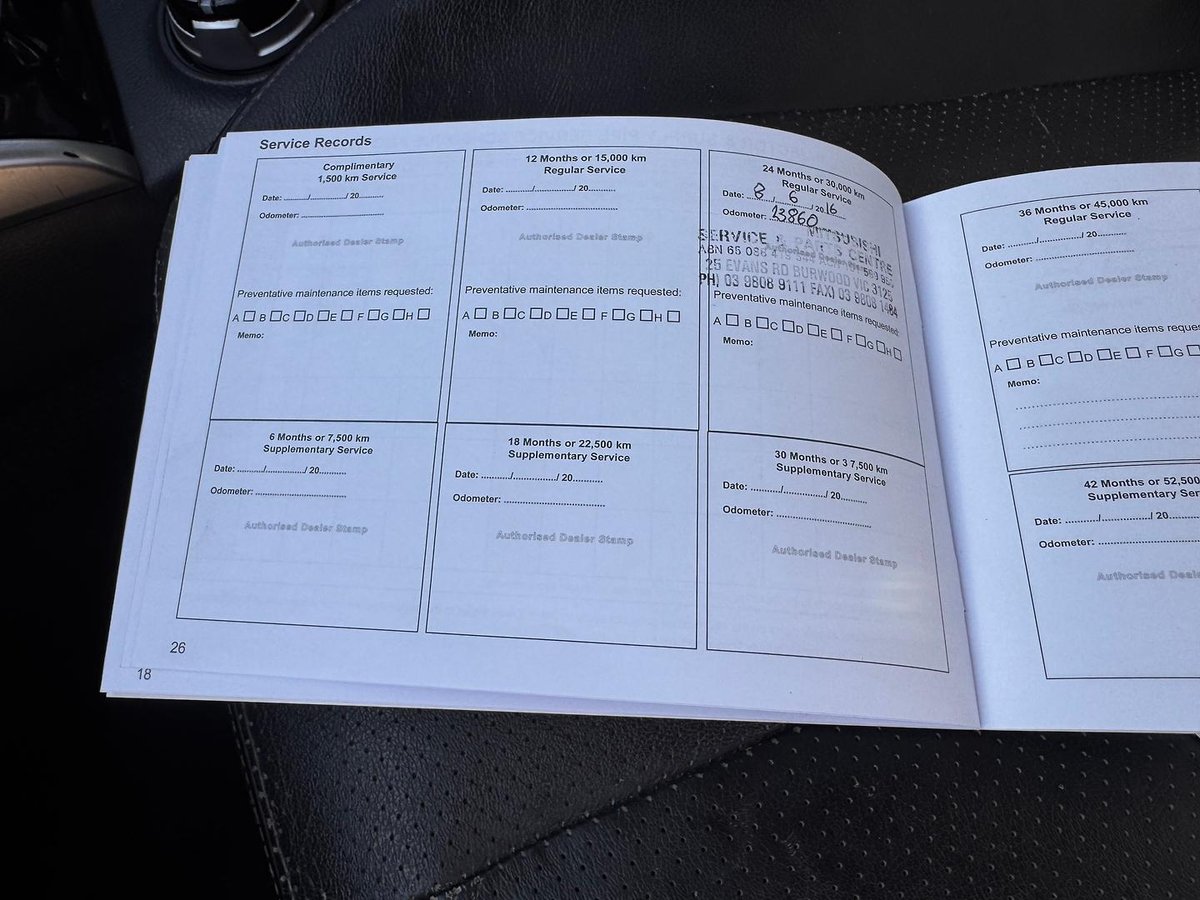 Service Records
Complimentary
1,500 km Service
Date: ........../............../ 20..........
Odometer: .................................
Authorised Dealer Stamp
Preventative maintenance items requested:
A B C D E F G H
Memo:
12 Months or 15,000 km
Regular Service
Date: ........../............../ 20..........
Odometer: .................................
Authorised Dealer Stamp
Preventative maintenance items requested:
A B C D E F G H
Memo:
24 Months or 30,000 km
Regular Service
Date: 8 / 6 / 2016
Odometer: 13860
MITSUBISHI
SERVICE & PARTS CENTRE
ABN 65 086
25 EVANS RD BURWOOD VIC 3125
PH) 03 9808 9111 FAX) 03 9808 1484
Preventative maintenance items requested:
A B C D E F G H
Memo:
6 Months or 7,500 km
Supplementary Service
Date: ........../............../ 20..........
Odometer: .................................
Authorised Dealer Stamp
18 Months or 22,500 km
Supplementary Service
Date: ........../............../ 20..........
Odometer: .................................
Authorised Dealer Stamp
30 Months or 3 7,500 km
Supplementary Service
Date: ........../............../ 20..........
Odometer: .................................
Authorised Dealer Stamp
26
18
36 Months or 45,000 km
Regular Service
Date: ........../............../ 20..........
Odometer: .................................
Authorised Dealer Stamp
Preventative maintenance items reques
A B C D E F G
Memo:
42 Months or 52,500
Supplementary Ser
Date: ........../............../ 20..........
Odometer: .................................
Authorised Deal